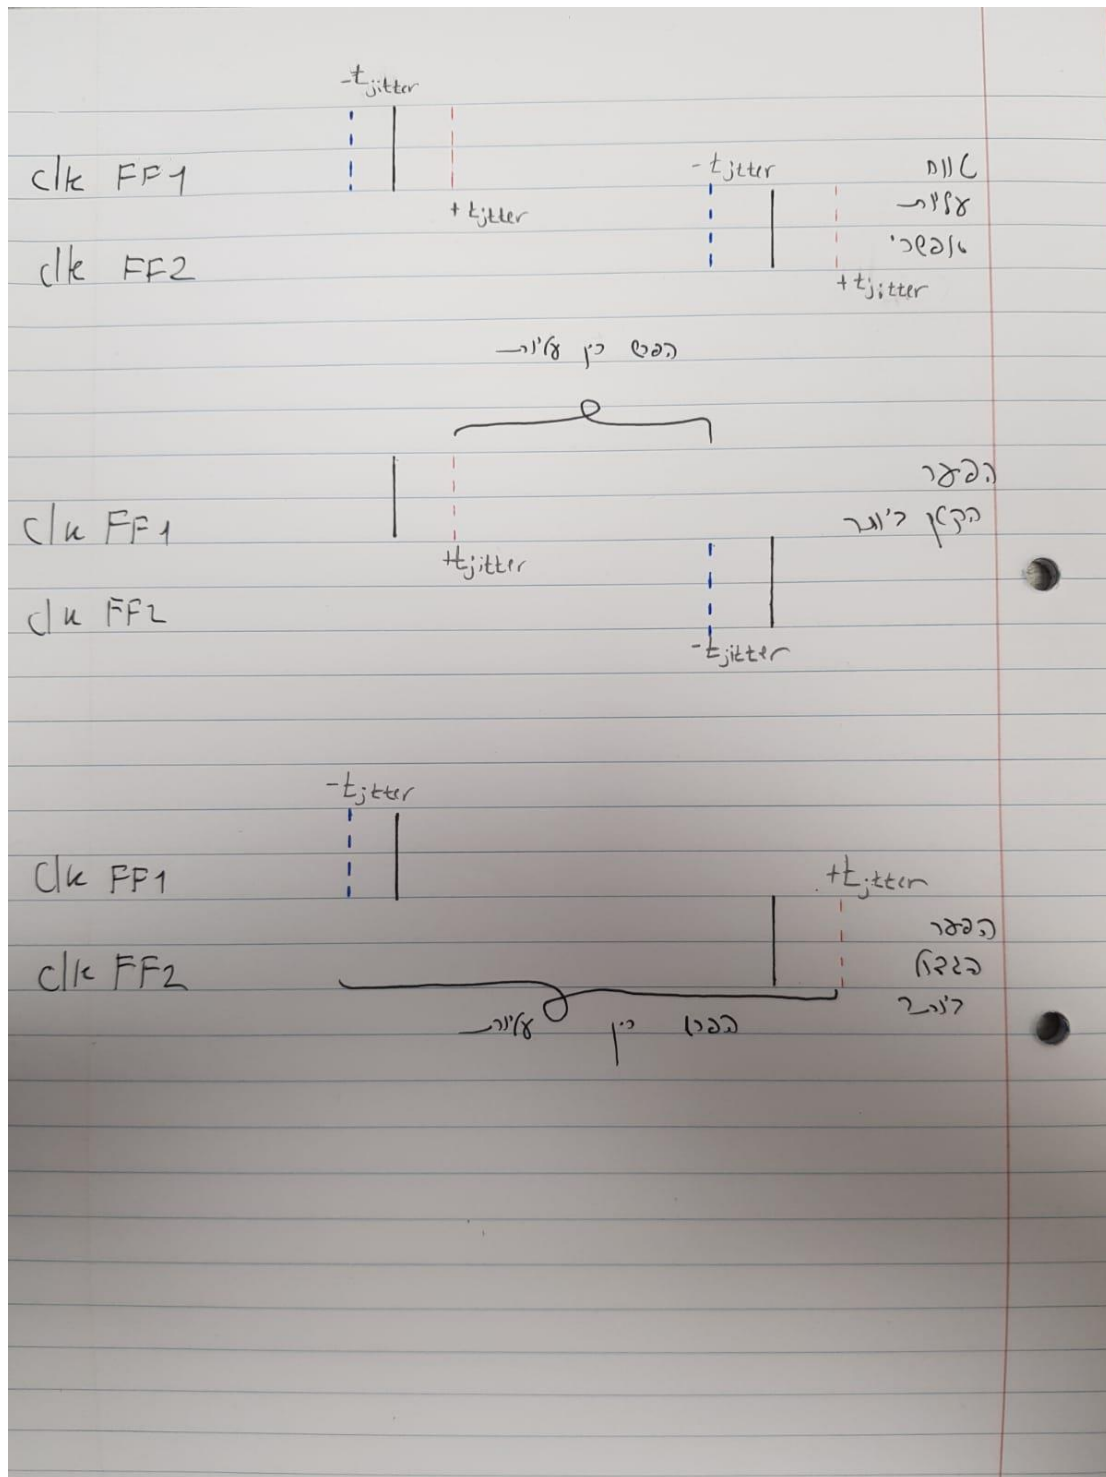 -tjitter
clk FF1
+tjitter
-tjitter
טווח
עליות
אפשרי
clk FF2
+tjitter
הפרש בין עליות
הפער
הקטן ביותר
clk FF1
+tjitter
clk FF2
-tjitter
-tjitter
clk FF1
+tjitter
הפער
הגדול
ביותר
clk FF2
הפרש בין עליות